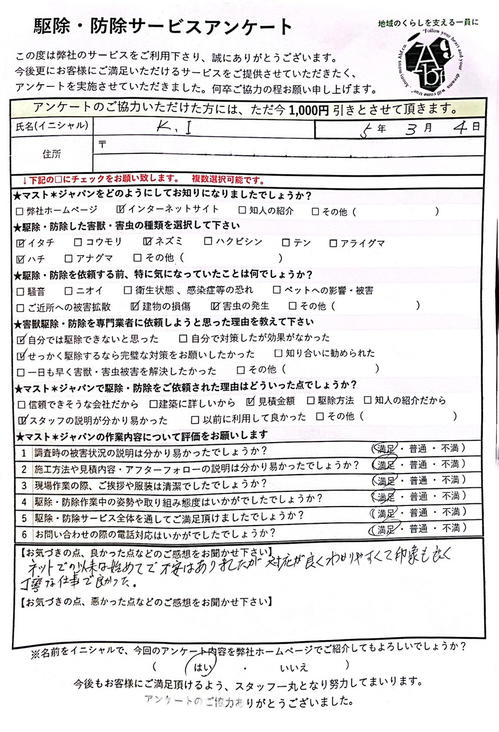 駆除・防除サービスアンケート
地域のくらしを支える一員に
この度は弊社のサービスをご利用下さり、誠にありがとうございます。
今後更にお客様にご満足いただけるサービスをご提供させていただきたく、
アンケートを実施させていただきました。何卒ご協力の程お願い申し上げます。
アンケートのご協力いただけた方には、ただ今1,000円引きとさせて頂きます。
氏名(イニシャル) K.I 5年 3月 4日
住所 〒
↓下記の□にチェックをお願い致します。 複数選択可能です。
★マスト*ジャパンをどのようにしてお知りになりましたでしょうか?
□弊社ホームページ ☑インターネットサイト □知人の紹介 □その他( )
★駆除・防除した害獣・害虫の種類を選択して下さい
☑イタチ □コウモリ ☑ネズミ □ハクビシン □テン □アライグマ
☑ハチ □アナグマ □その他( )
★駆除・防除を依頼する前、特に気になっていたことは何でしょうか?
□騒音 □ニオイ □衛生状態、感染症等の恐れ □ペットへの影響・被害
□ご近所への被害拡散 ☑建物の損傷 ☑害虫の発生 □その他( )
★害獣駆除・防除を専門業者に依頼しようと思った理由を教えて下さい
☑自分では駆除できないと思った □自分で対策したが効果がなかった
☑せっかく駆除するなら完璧な対策をお願いしたかった □知り合いに勧められた
□一日も早く害獣・害虫被害を解決したかった □その他( )
★マスト*ジャパンで駆除・防除をご依頼された理由はどういった点でしょうか?
□信頼できそうな会社だから □建築に詳しいから ☑見積金額 □駆除方法 □知人の紹介だから
☑スタッフの説明が分かり易かった □以前に利用して良かった □その他( )
★マスト*ジャパンの作業内容について評価をお願いします
1 調査時の被害状況の説明は分かり易かったでしょうか? (満足・普通・不満)
2 施工方法や見積内容・アフターフォローの説明は分かり易かったでしょうか? (満足・普通・不満)
3 現場作業の際、ご挨拶や服装は清潔でしたでしょうか? (満足・普通・不満)
4 駆除・防除作業中の姿勢や取り組み態度はいかがでしたでしょうか? (満足・普通・不満)
5 駆除・防除サービス全体を通してご満足頂けましたでしょうか? (満足・普通・不満)
6 お問い合わせの際の電話対応はいかがでしたでしょうか? (満足・普通・不満)
【お気づきの点、良かった点などのご感想をお聞かせ下さい】
ネットでの以来は始めてで不安はありましたが 対応が良くわかりやすくて印象も良く
丁寧な仕事で良かった。
【お気づきの点、悪かった点などのご感想をお聞かせ下さい】
※名前をイニシャルで、今回のアンケート内容を弊社ホームページでご紹介してもよろしいでしょうか?
( はい ・ いいえ )
今後もお客様にご満足頂けるよう、スタッフ一丸となり努力してまいります。
アンケートのご協力ありがとうございました。